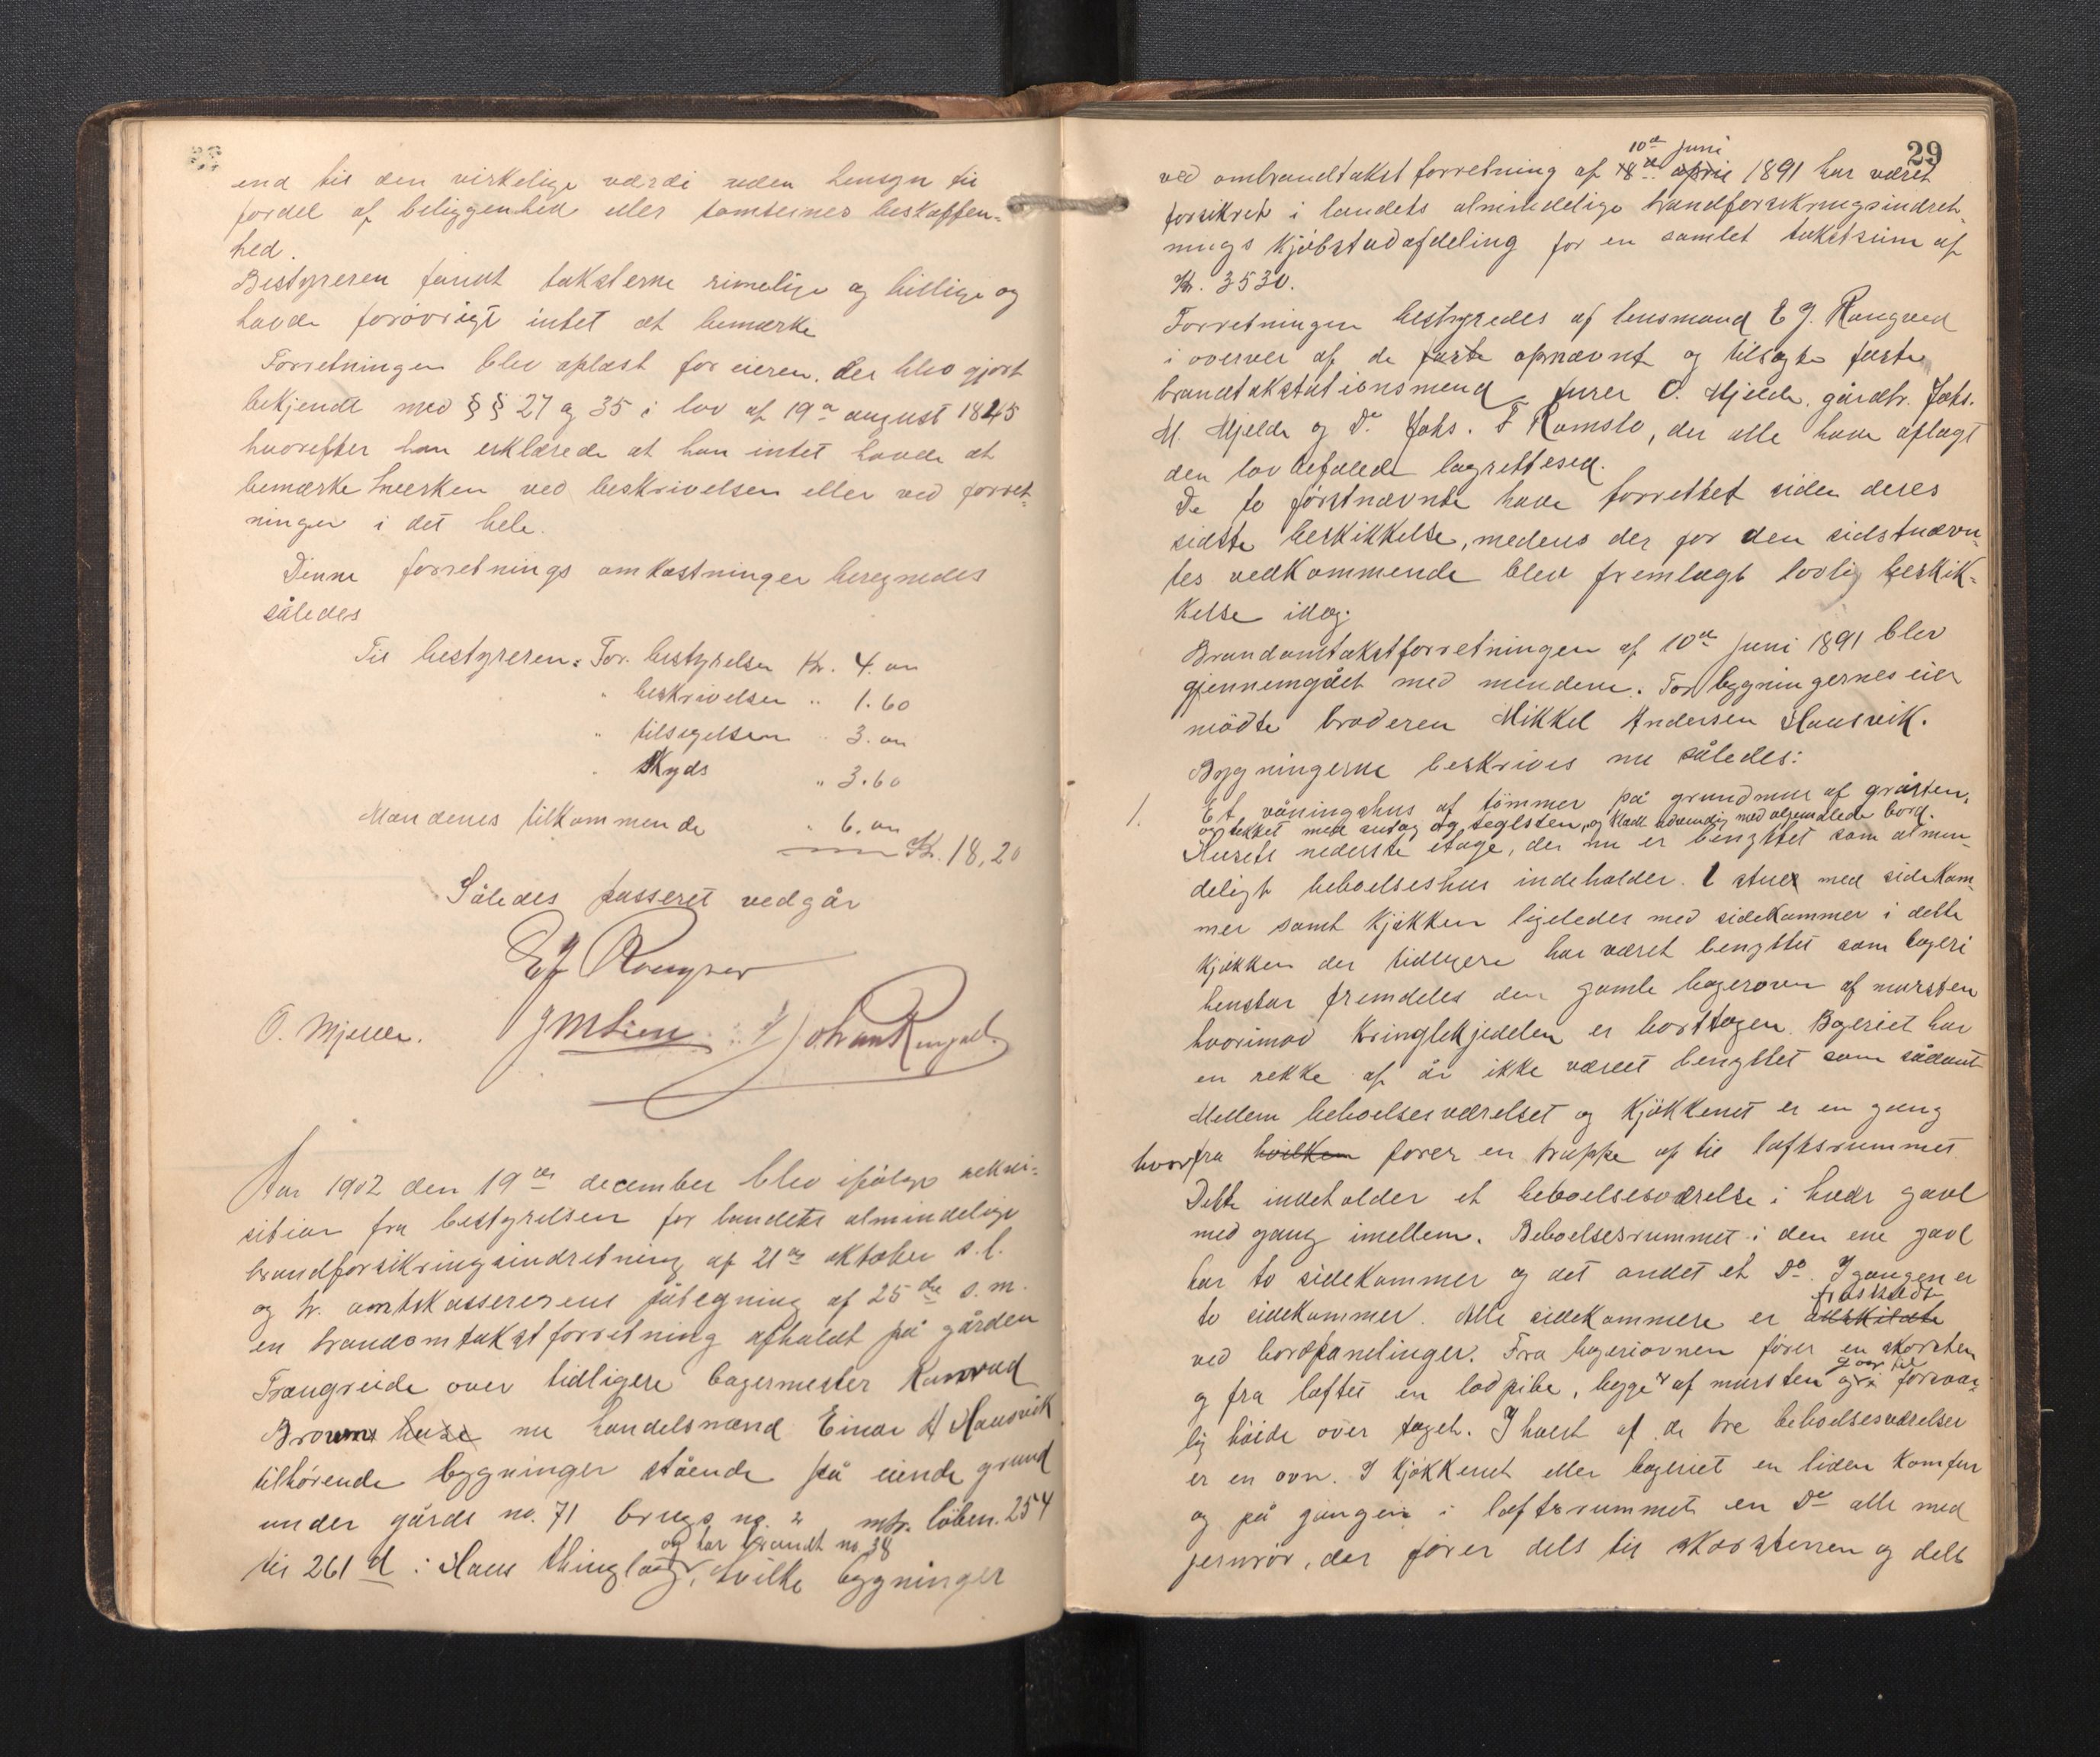 end til den virkelige værdi uden hensyn til
fordel af beliggenhed eller tomternes beskaffen-
hed.
Bestyreren fandt taksterne rimelige og billige og
havde forøvrigt intet at bemærke
Forretningen blev oplæst for eieren, der blev gjort
bekjendt med §§ 27 og 35 i lov af 19de august 1845
hvorefter han erklærede at han intet havde at
bemærke hverken ved beskrivelsen eller ved forret-
ningen i det hele.
Denne forretnings omkostninger beregnedes
således
Til bestyreren: For bestyrelsen Kr. 4. 00
" beskrivelsen " 1.60
" tilsigelsen " 3. 00
" Skyds " 3.60
Mændenes tilkommende " 6. 00
Kr. 18,20
Således passeret vedgår
O. Mjelde. J M Lien
Aar 1902 den 19de december blev ifølge rekvi-
sition fra bestyrelsen for landets almindelige
brandforsikringsindretning af 21de oktober s. l.
og hr. amtskassererens påtegning af 25de s. m.
en brandomtakstforretning afholdt på gården
Trængreide over tidligere bagermester Konrad
Browns huse nu handelsmand Einar A Hausvik
tilhørende bygninger stående på eiende grund
under gårds no. 71 brugs no. 2 mtr. løben. 254
og har brandt no. 38
til 261 d i Haus thinglag, hvilke bygninger
29
10de juni
ved ombrandtakstforretning af 18de april 1891 har været
forsikret i landets almindelige brandforsikringsindret-
nings Kjøbstadafdeling for en samlet takstsum af
Kr. 3530.
Forretningen bestyredes af lensmand E J. Rongved
i overvær af de faste opnævnt og tilsagte faste
brandtakstationsmænd furer O. Mjelde, gårdbr. Johs.
M. Mjelde og Do Johs. F Romslo, der alle have aflagt
den lovbefalede lagrettesed.
De to førstnævnte have forrettet siden deres
sidste beskikkelse, medens der for den sidstnævn-
tes vedkommende blev fremlagt lovlig beskik-
kelse idag.
Brandomtakstforretningen af 10de juni 1891 blev
gjennemgået med mændene. For bygningernes eier
mødte broderen Mikkel Andersen Hausvik.
Bygningerne beskrives nu således:
1. Et våningshus af tømmer på grundmur af gråsten,
og tækket med sutag og teglsten, og klædt udvendig med alzemalede bord.
Husets nederste etage, der nu er benyttet som almin-
deligt beboelseshus indeholder 1 stue med sidekam-
mer samt kjøkken ligeledes med sidekammer i dette
kjøkken der tidligere har været benyttet som bageri
henstår fremdeles den gamle bagerovn af mursten
hvorimod Kringlekjedelen er borttagen. Bageriet har
en rekke af år ikke været benyttet som sådant
Mellem beboelsesværelset og Kjøkkenet er en gang
hvorfra hvilken fører en trappe op til loftsrummet
Dette indeholder et beboelsesværelse i hver gavl
med gang imellem. Beboelsesrummet i den ene gavl
har to sidekammer og det andet et Do. I gangen er
to sidekammer. Alle sidekammere er adskildte
ved bordpanelinger. Fra bageriovnen fører en skorsten
og fra loftet en lodpibe, begge af mursten går til forsvar-
lig høide over taget. I hvert af de tre beboelsesværelser
er en ovn. I Kjøkkenet eller bageriet en liden Komfur
og på gangen i loftsrummet en Do alle med
jernrør, der fører dels til skorstenen og dels